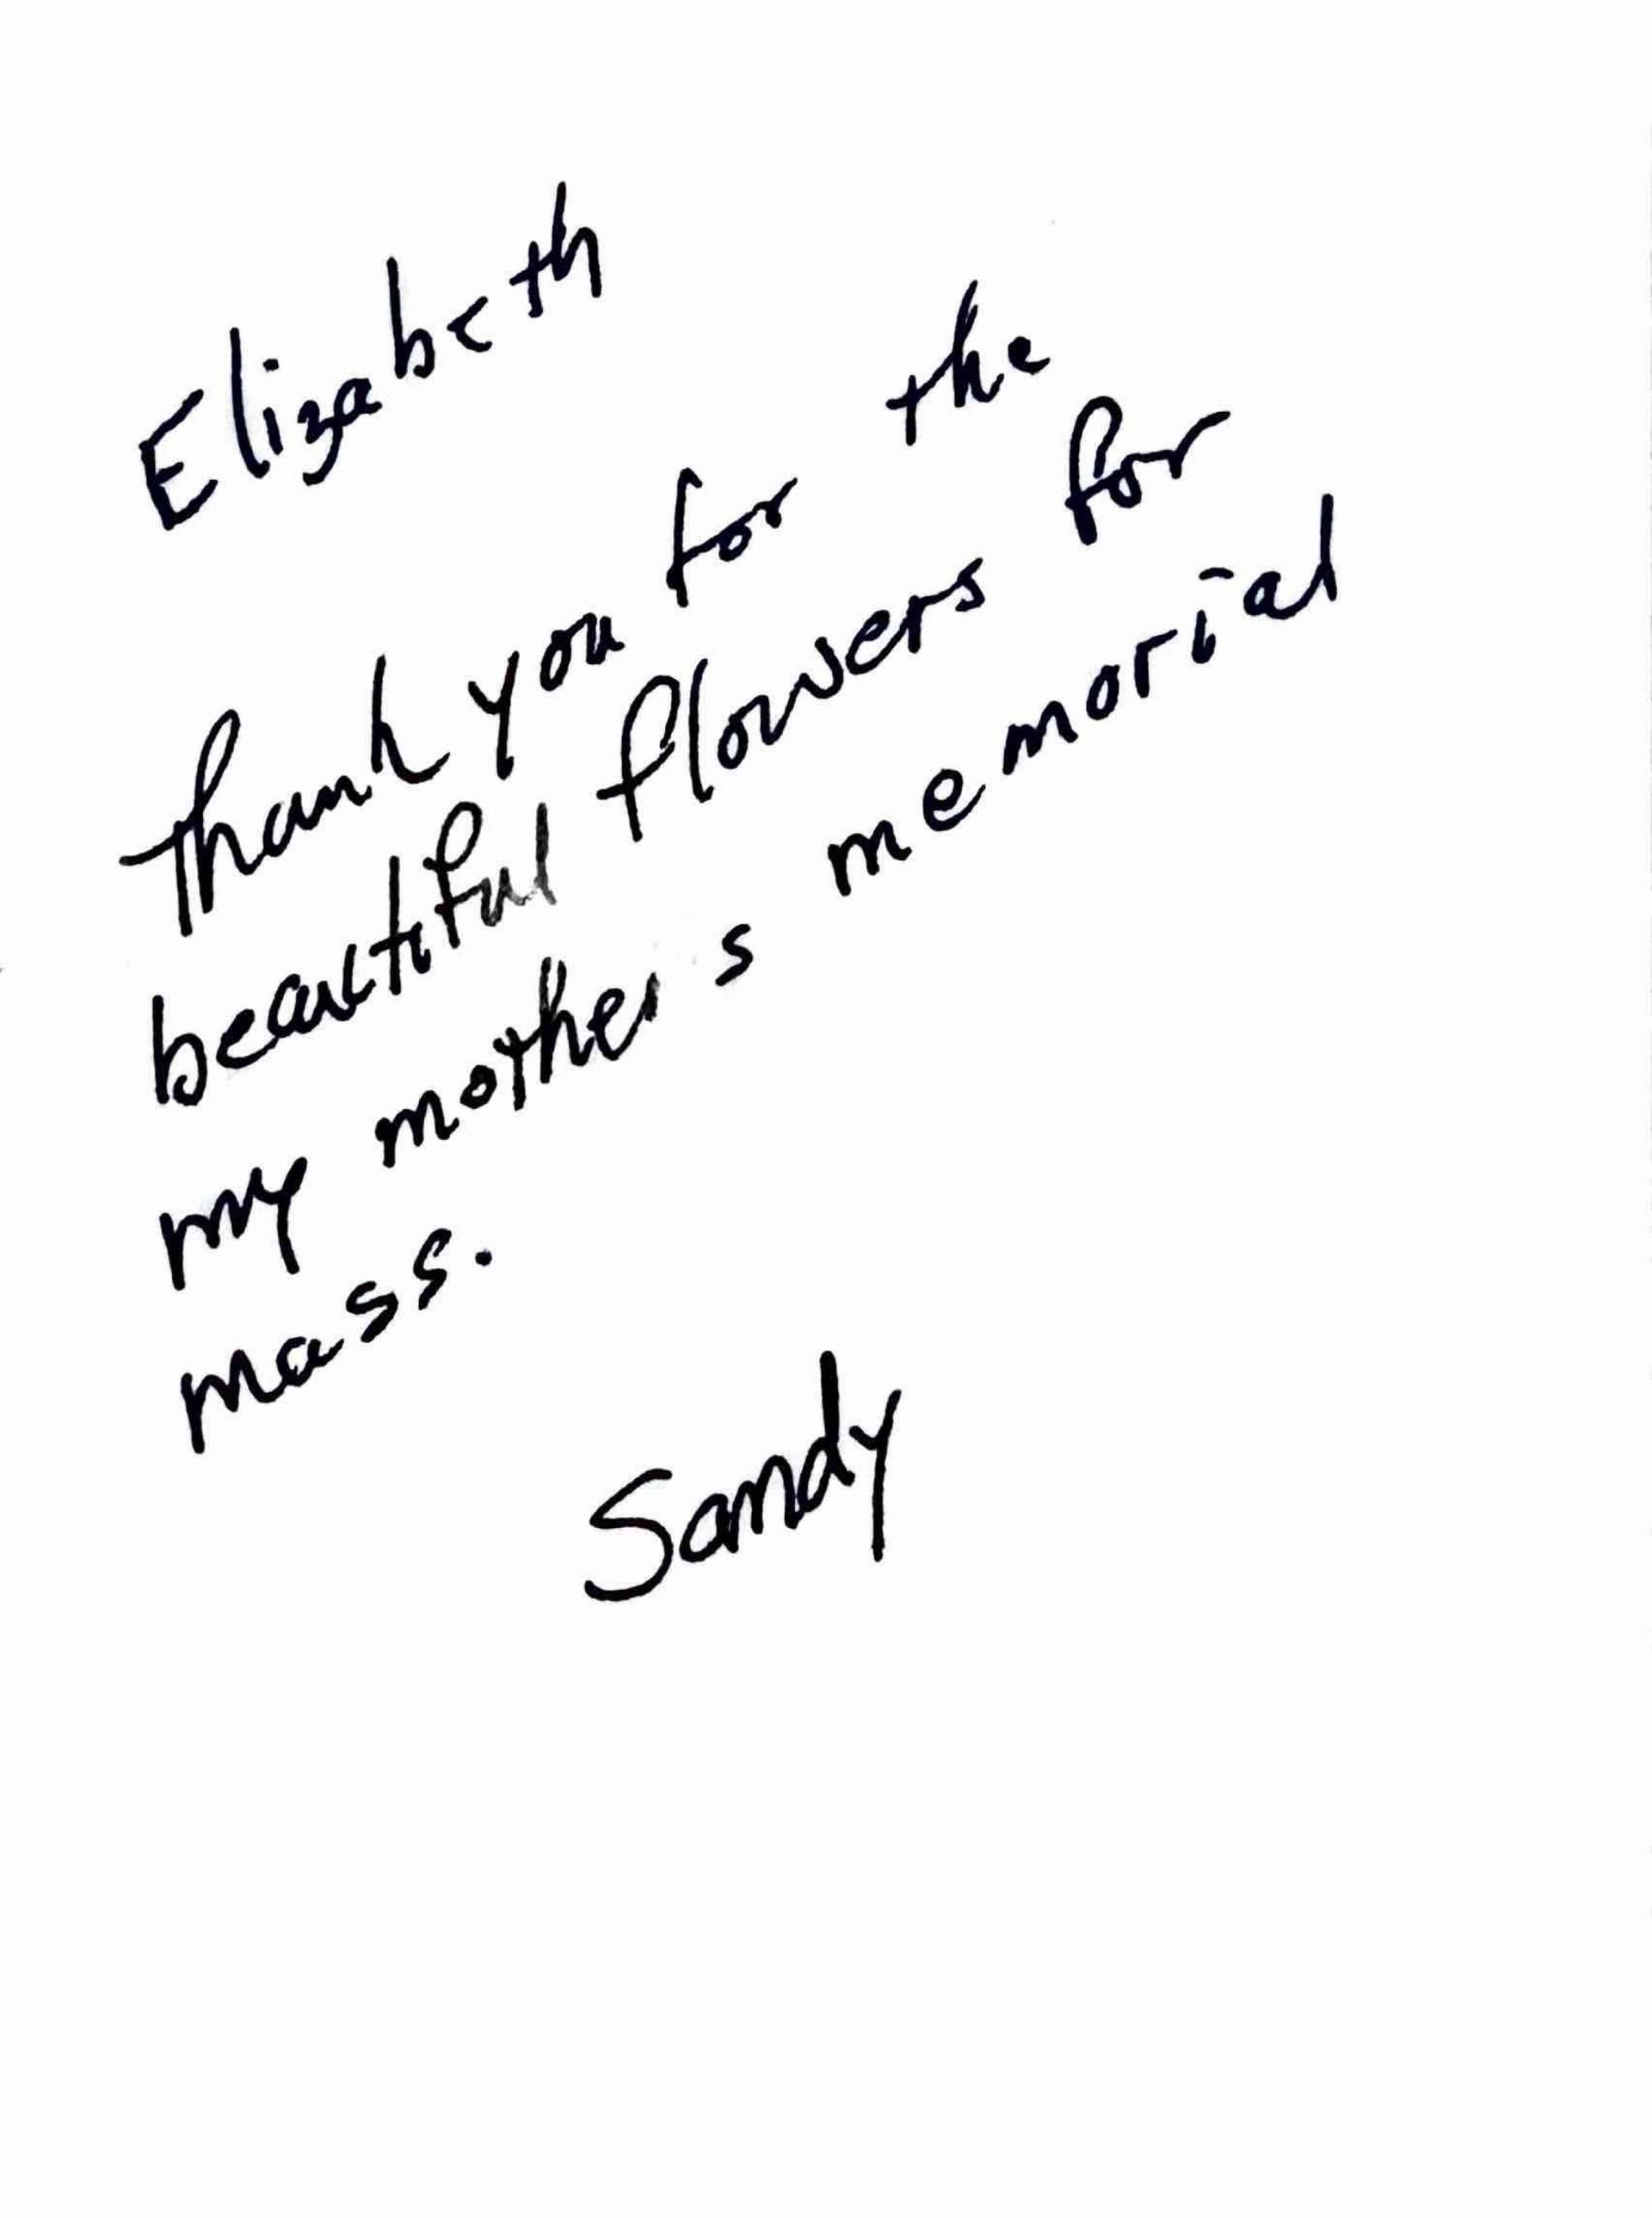 Elizabeth
Thank you for the
beautiful flowers for
my mother's memorial
mass.
Sandy